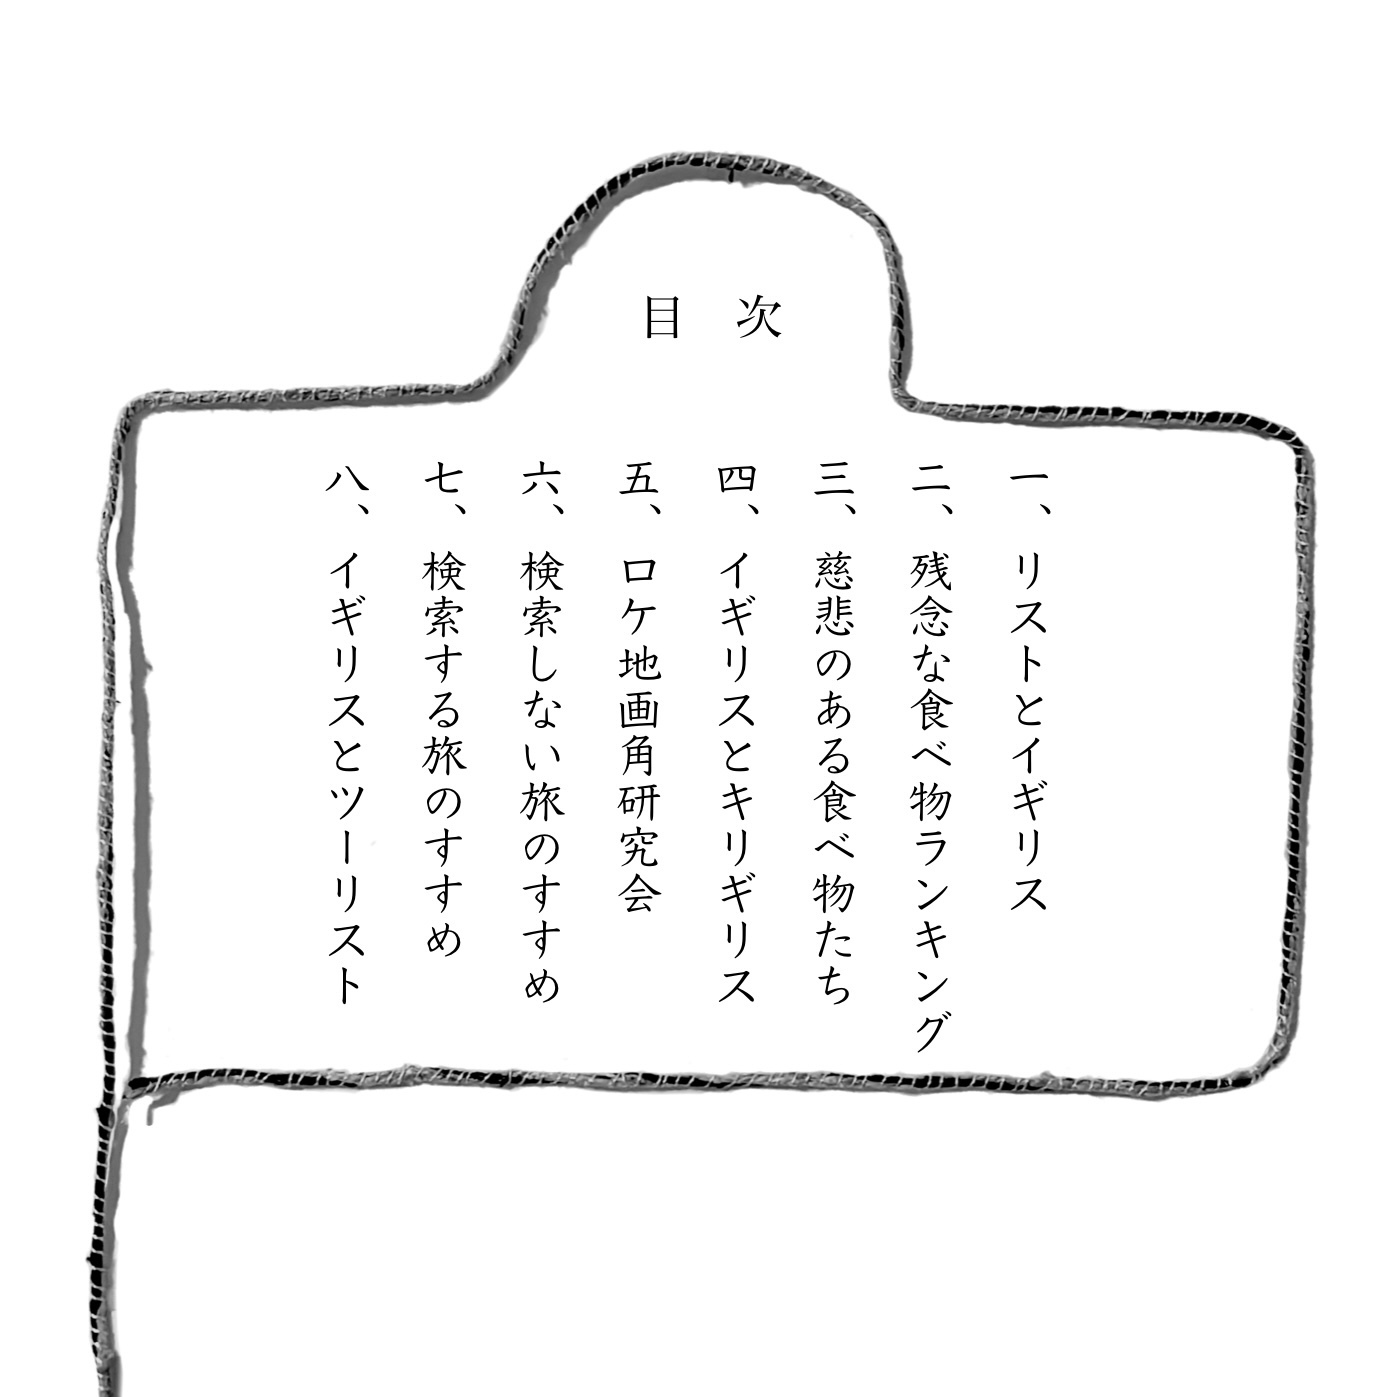 目 次
一、リストとイギリス
二、残念な食べ物ランキング
三、慈悲のある食べ物たち
四、イギリスとキリギリス
五、ロケ地画角研究会
六、検索しない旅のすすめ
七、検索する旅のすすめ
八、イギリスとツーリスト